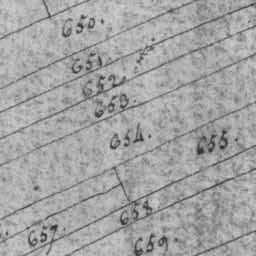 650.
651.
652.
653.
654.
655.
658
657.
659.